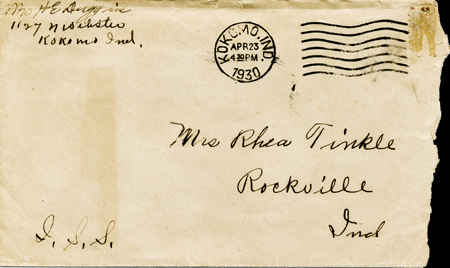 Mrs H E Duggin
1127 N Webster
Kokomo Ind.
KOKOMO, IND.
APR 23
4 30 PM
1930
Mrs Rhea Tinkle
Rockville
Ind
I. S. S.